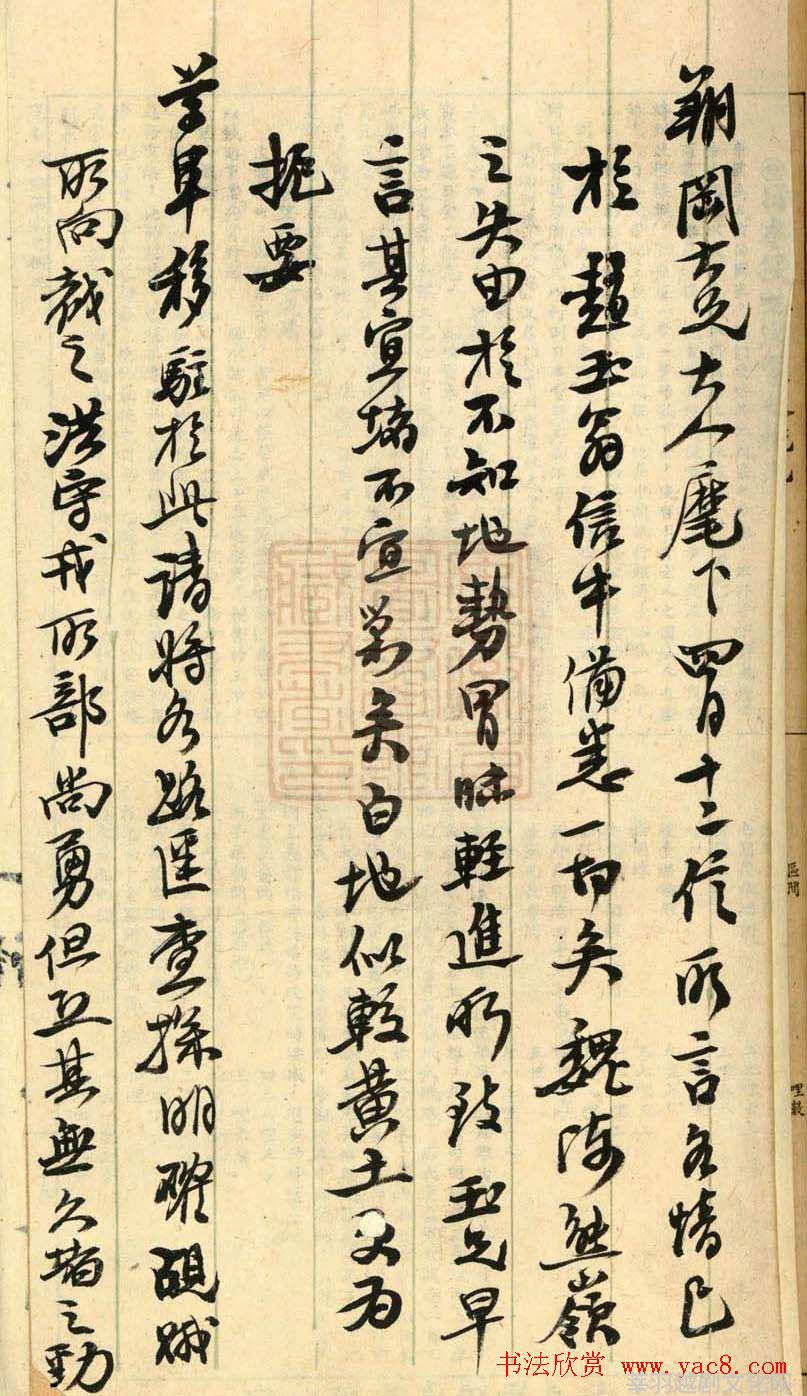 朔岡大兄大人麾下四月十二信所言各情已
於趙玉翁信中備悉一切矣魏河熊嶺
之失由於不知地勢冒昧輕進所致玉兄早
言其宜堵不宜剿矣白地似較黃土又為
扼要
尊早移駐於此請將各路匪查探明確覘賊
所向截之洪守戎所部尚勇但立其無久堵之勁
書法欣賞 www.yac8.com
區問